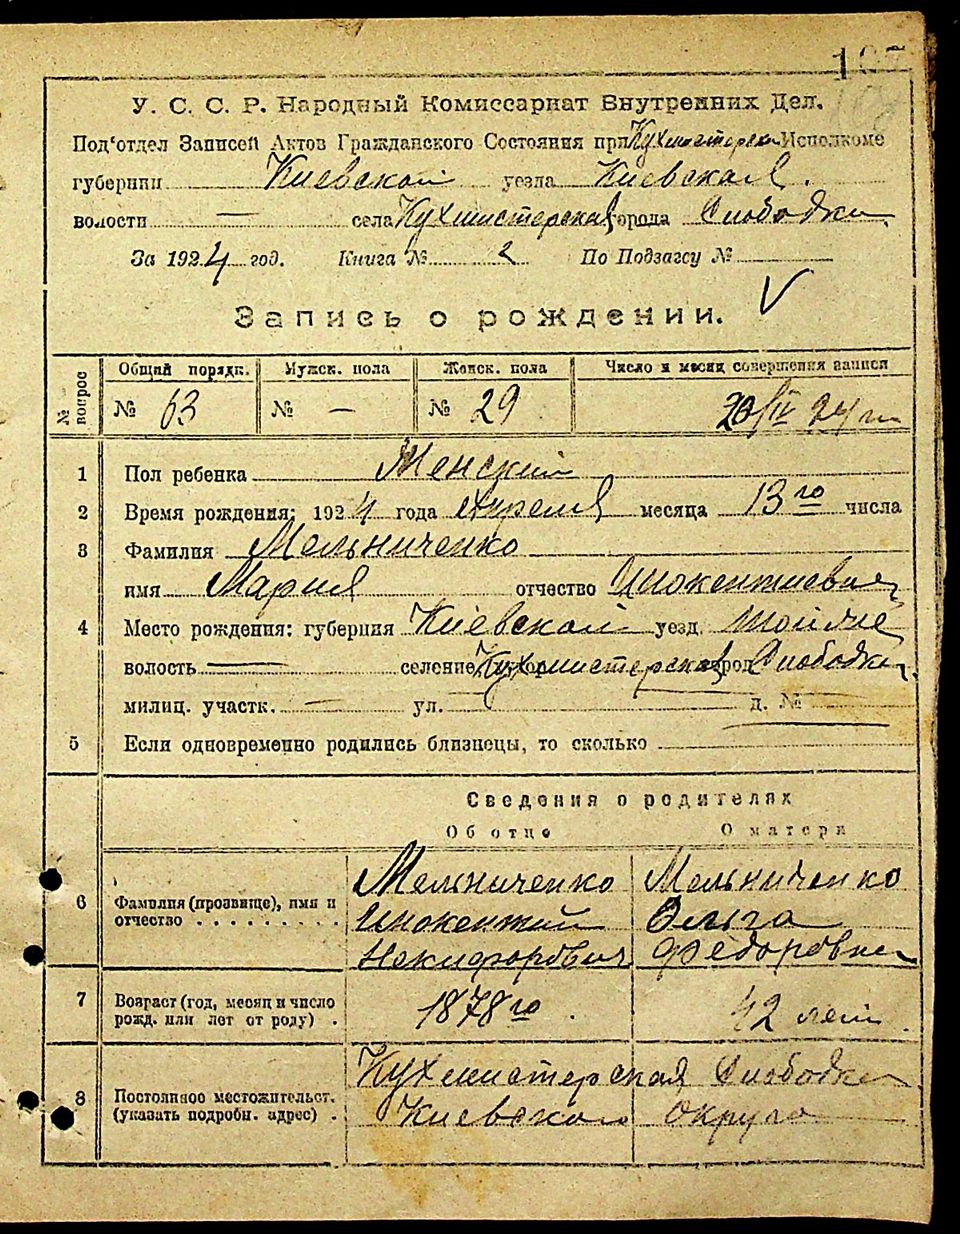 У. С. С. Р. Народный Комиссариат Внутренних Дел.
Под'отдел Записей Актов Гражданского Состояния при Кухмистерск. Исполкоме
губернии Киевской уезда Киевская.
волости — села Кухмистерская города Слободка
За 1924 год. Книга № 2 По Подзагсу №
V
Запись о рождении.
№ вопрос
Общий порядк. Мужск. пола Женск. пола Число и месяц совершения записи
№ 63 № — № 29 20/IV 24 г.
1 Пол ребенка Женский
2 Время рождения: 1924 года Апреля месяца 13го числа
3 Фамилия Мельниченко
имя Мария отчество Инокентиевна
4 Место рождения: губерния Киевской уезд. той же
волость — селение Кухмистерская город Слободка
милиц. участк. — ул. д. №
5 Если одновременно родились близнецы, то сколько
Сведения о родителях
Об отце О матери
Мельниченко Мельниченко
6 Фамилия (прозвище), имя и отчество Инокентий Ольга
Некифорович Федоровна
7 Возраст (год, месяц и число
рожд. или лет от роду) 1878 го 42 лет
Кухмистерская Слободка
8 Постоянное местожительст.
(указать подробн. адрес) Киевского округа